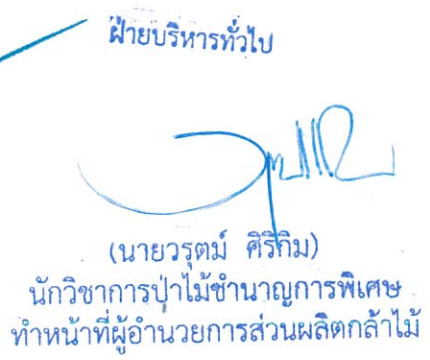 ฝ่ายบริหารทั่วไป
(นายวรุตม์ ศิริกิม)
นักวิชาการป่าไม้ชำนาญการพิเศษ
ทำหน้าที่ผู้อำนวยการส่วนผลิตกล้าไม้